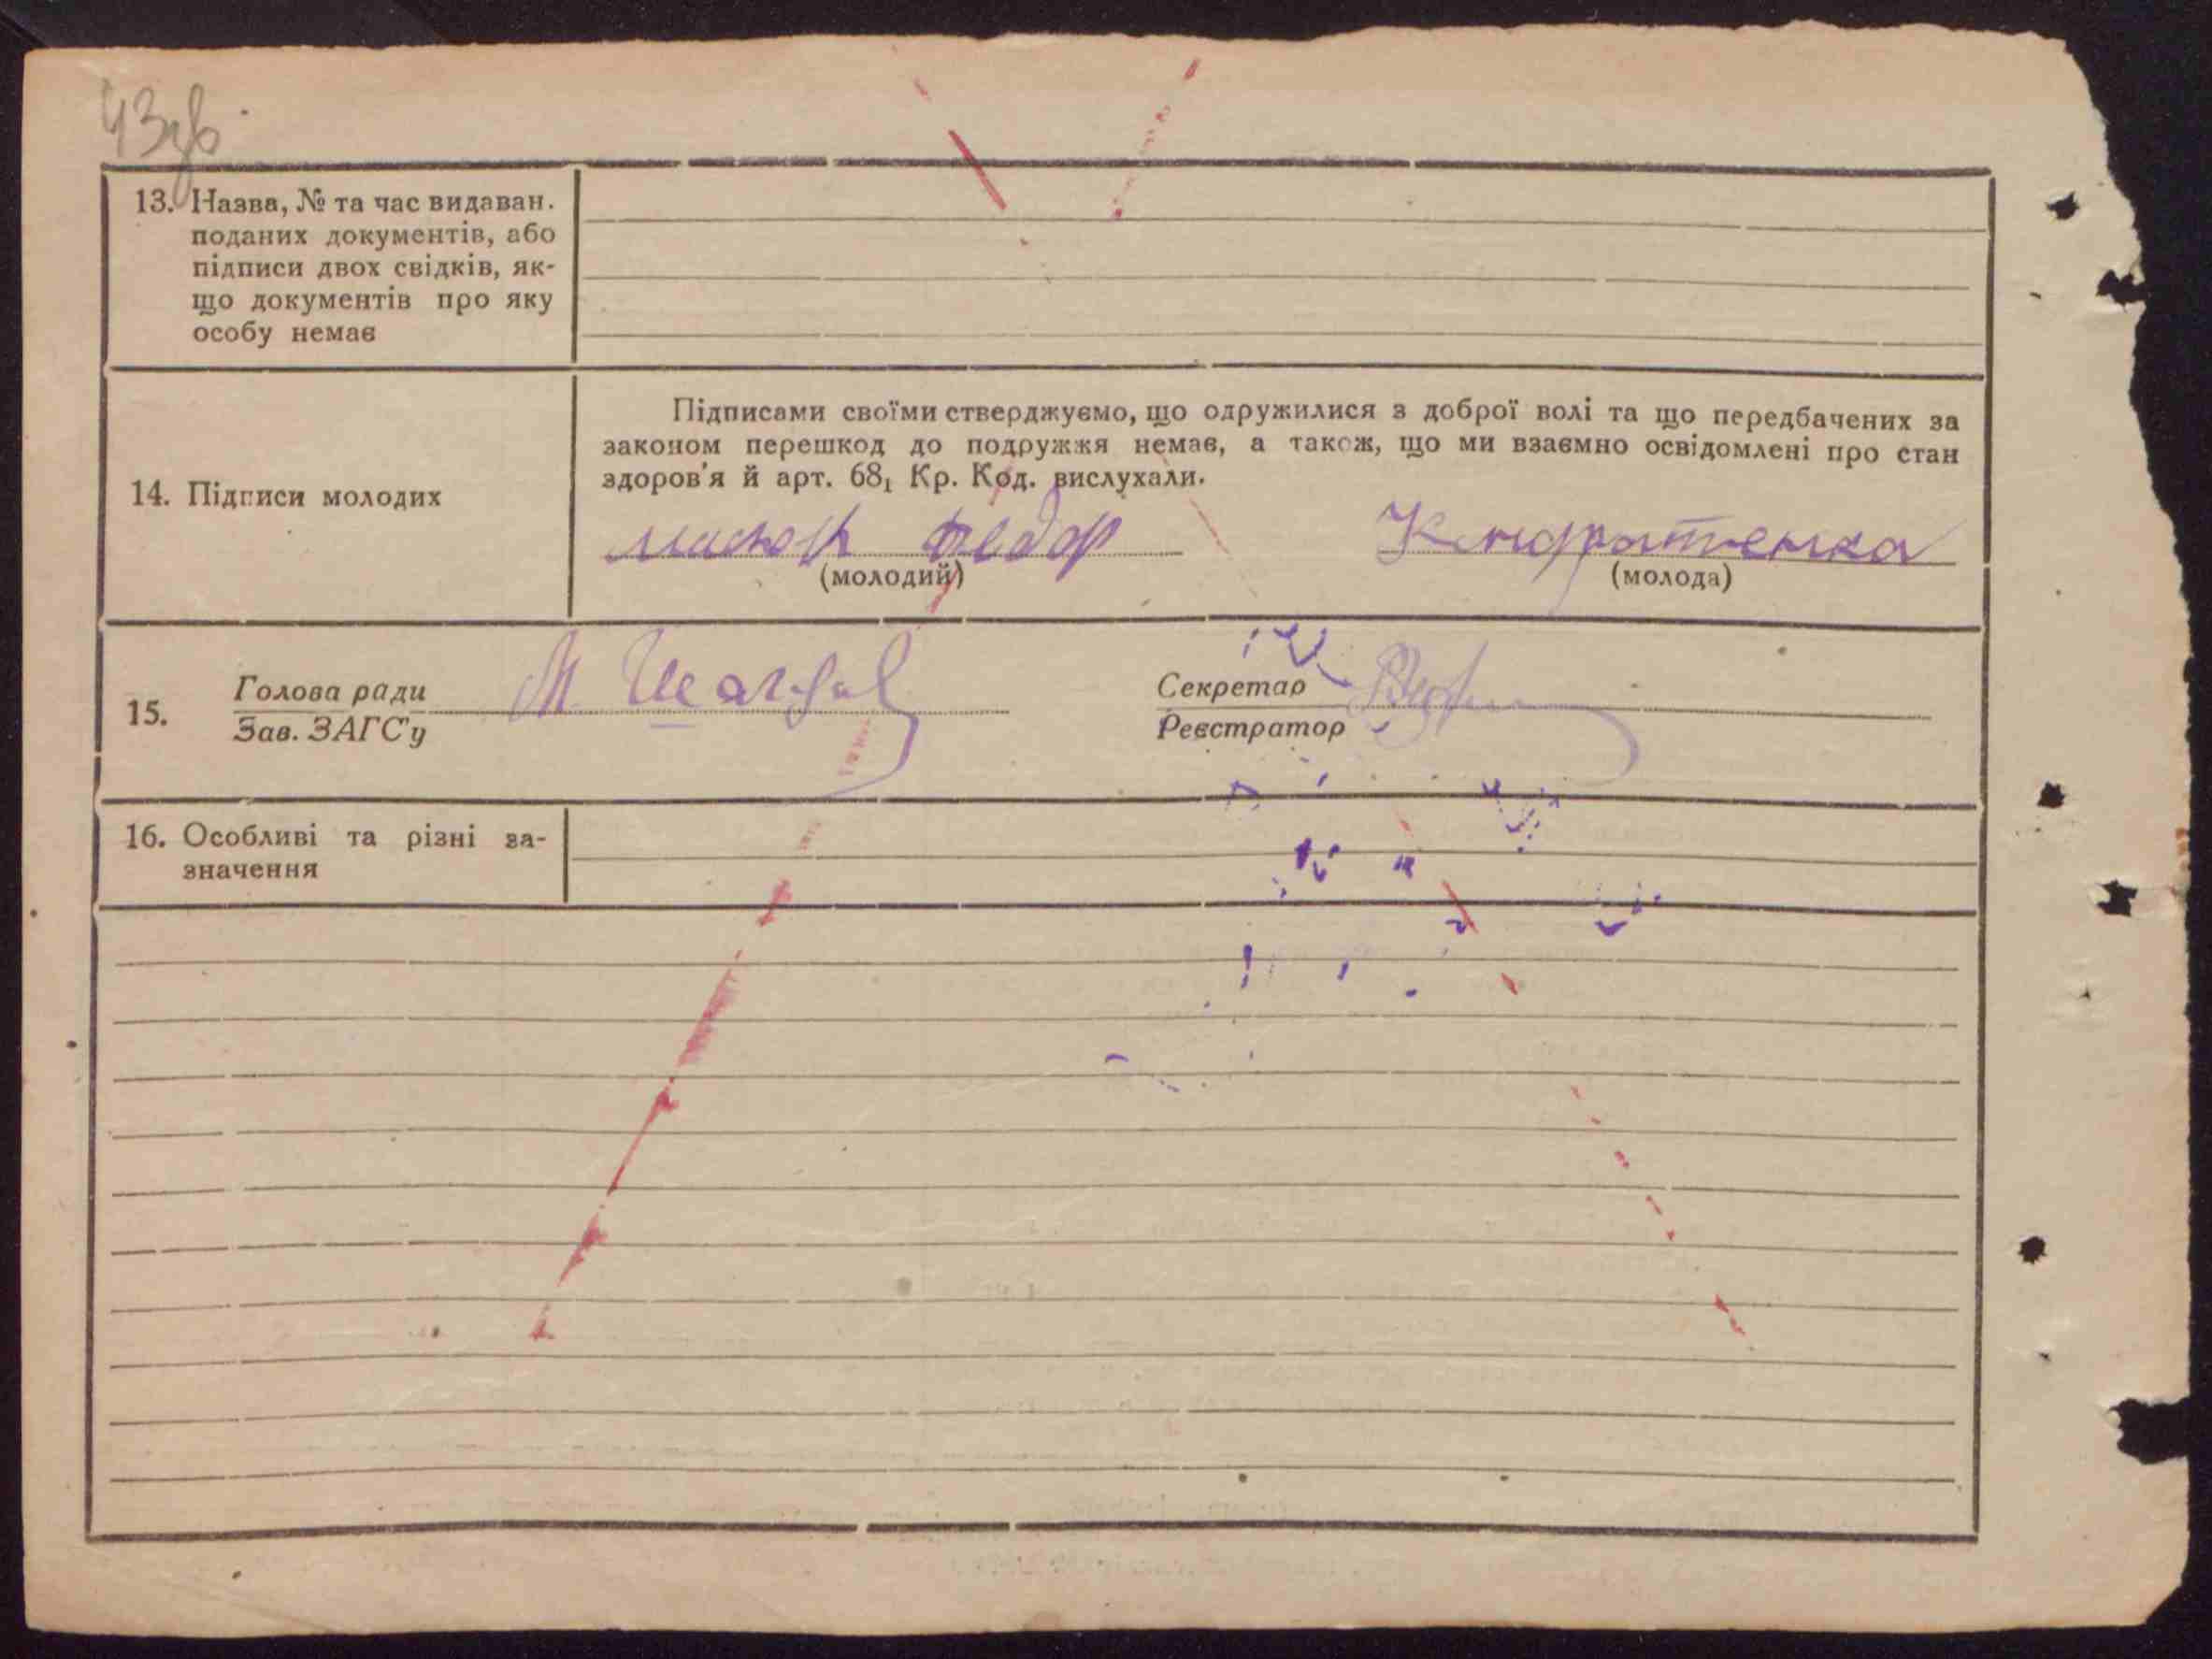 43 зв
13. Назва, № та час видаван.
поданих документів, або
підписи двох свідків, як-
що документів про яку
особу немає
14. Підписи молодих
Підписами своїми стверджуємо, що одружилися з доброї волі та що передбачених за
законом перешкод до подружжя немає, а також, що ми взаємно освідомлені про стан
здоров'я й арт. 68₁ Кр. Код. вислухали.
Федор
(молодий)
Кондратенка
(молода)
15.
Голова ради
Зав. ЗАГС'у
М.
Секретар
Реєстратор
16. Особливі та різні за-
значення